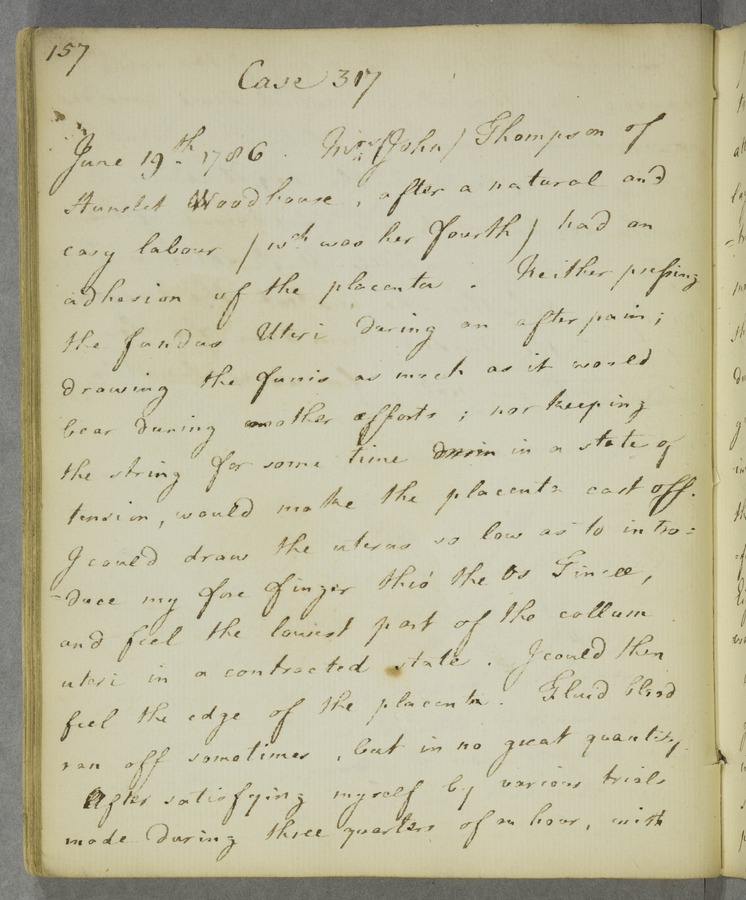 157
Case 317
June 19th 1786. Mrs (John) Thompson of
Hunslet Woodhouse, after a natural and
easy labour (wch was her fourth) had an
adhesion of the placenta. Neither pressing
the fundus Uteri during an after pain;
drawing the funis as much as it would
bear during mother efforts; nor keeping
the string for some time in in a state of
tension, would make the placenta cast off.
I could draw the uterus so low as to intro=
-duce my fore finger thro' the Os Tincæ,
and feel the lowest part of the collum
uteri in a contracted state. I could then
feel the edge of the placenta. Fluid blood
ran off sometimes, but in no great quantity.
After satisfying myself by various trials
made during three quarters of an hour, with